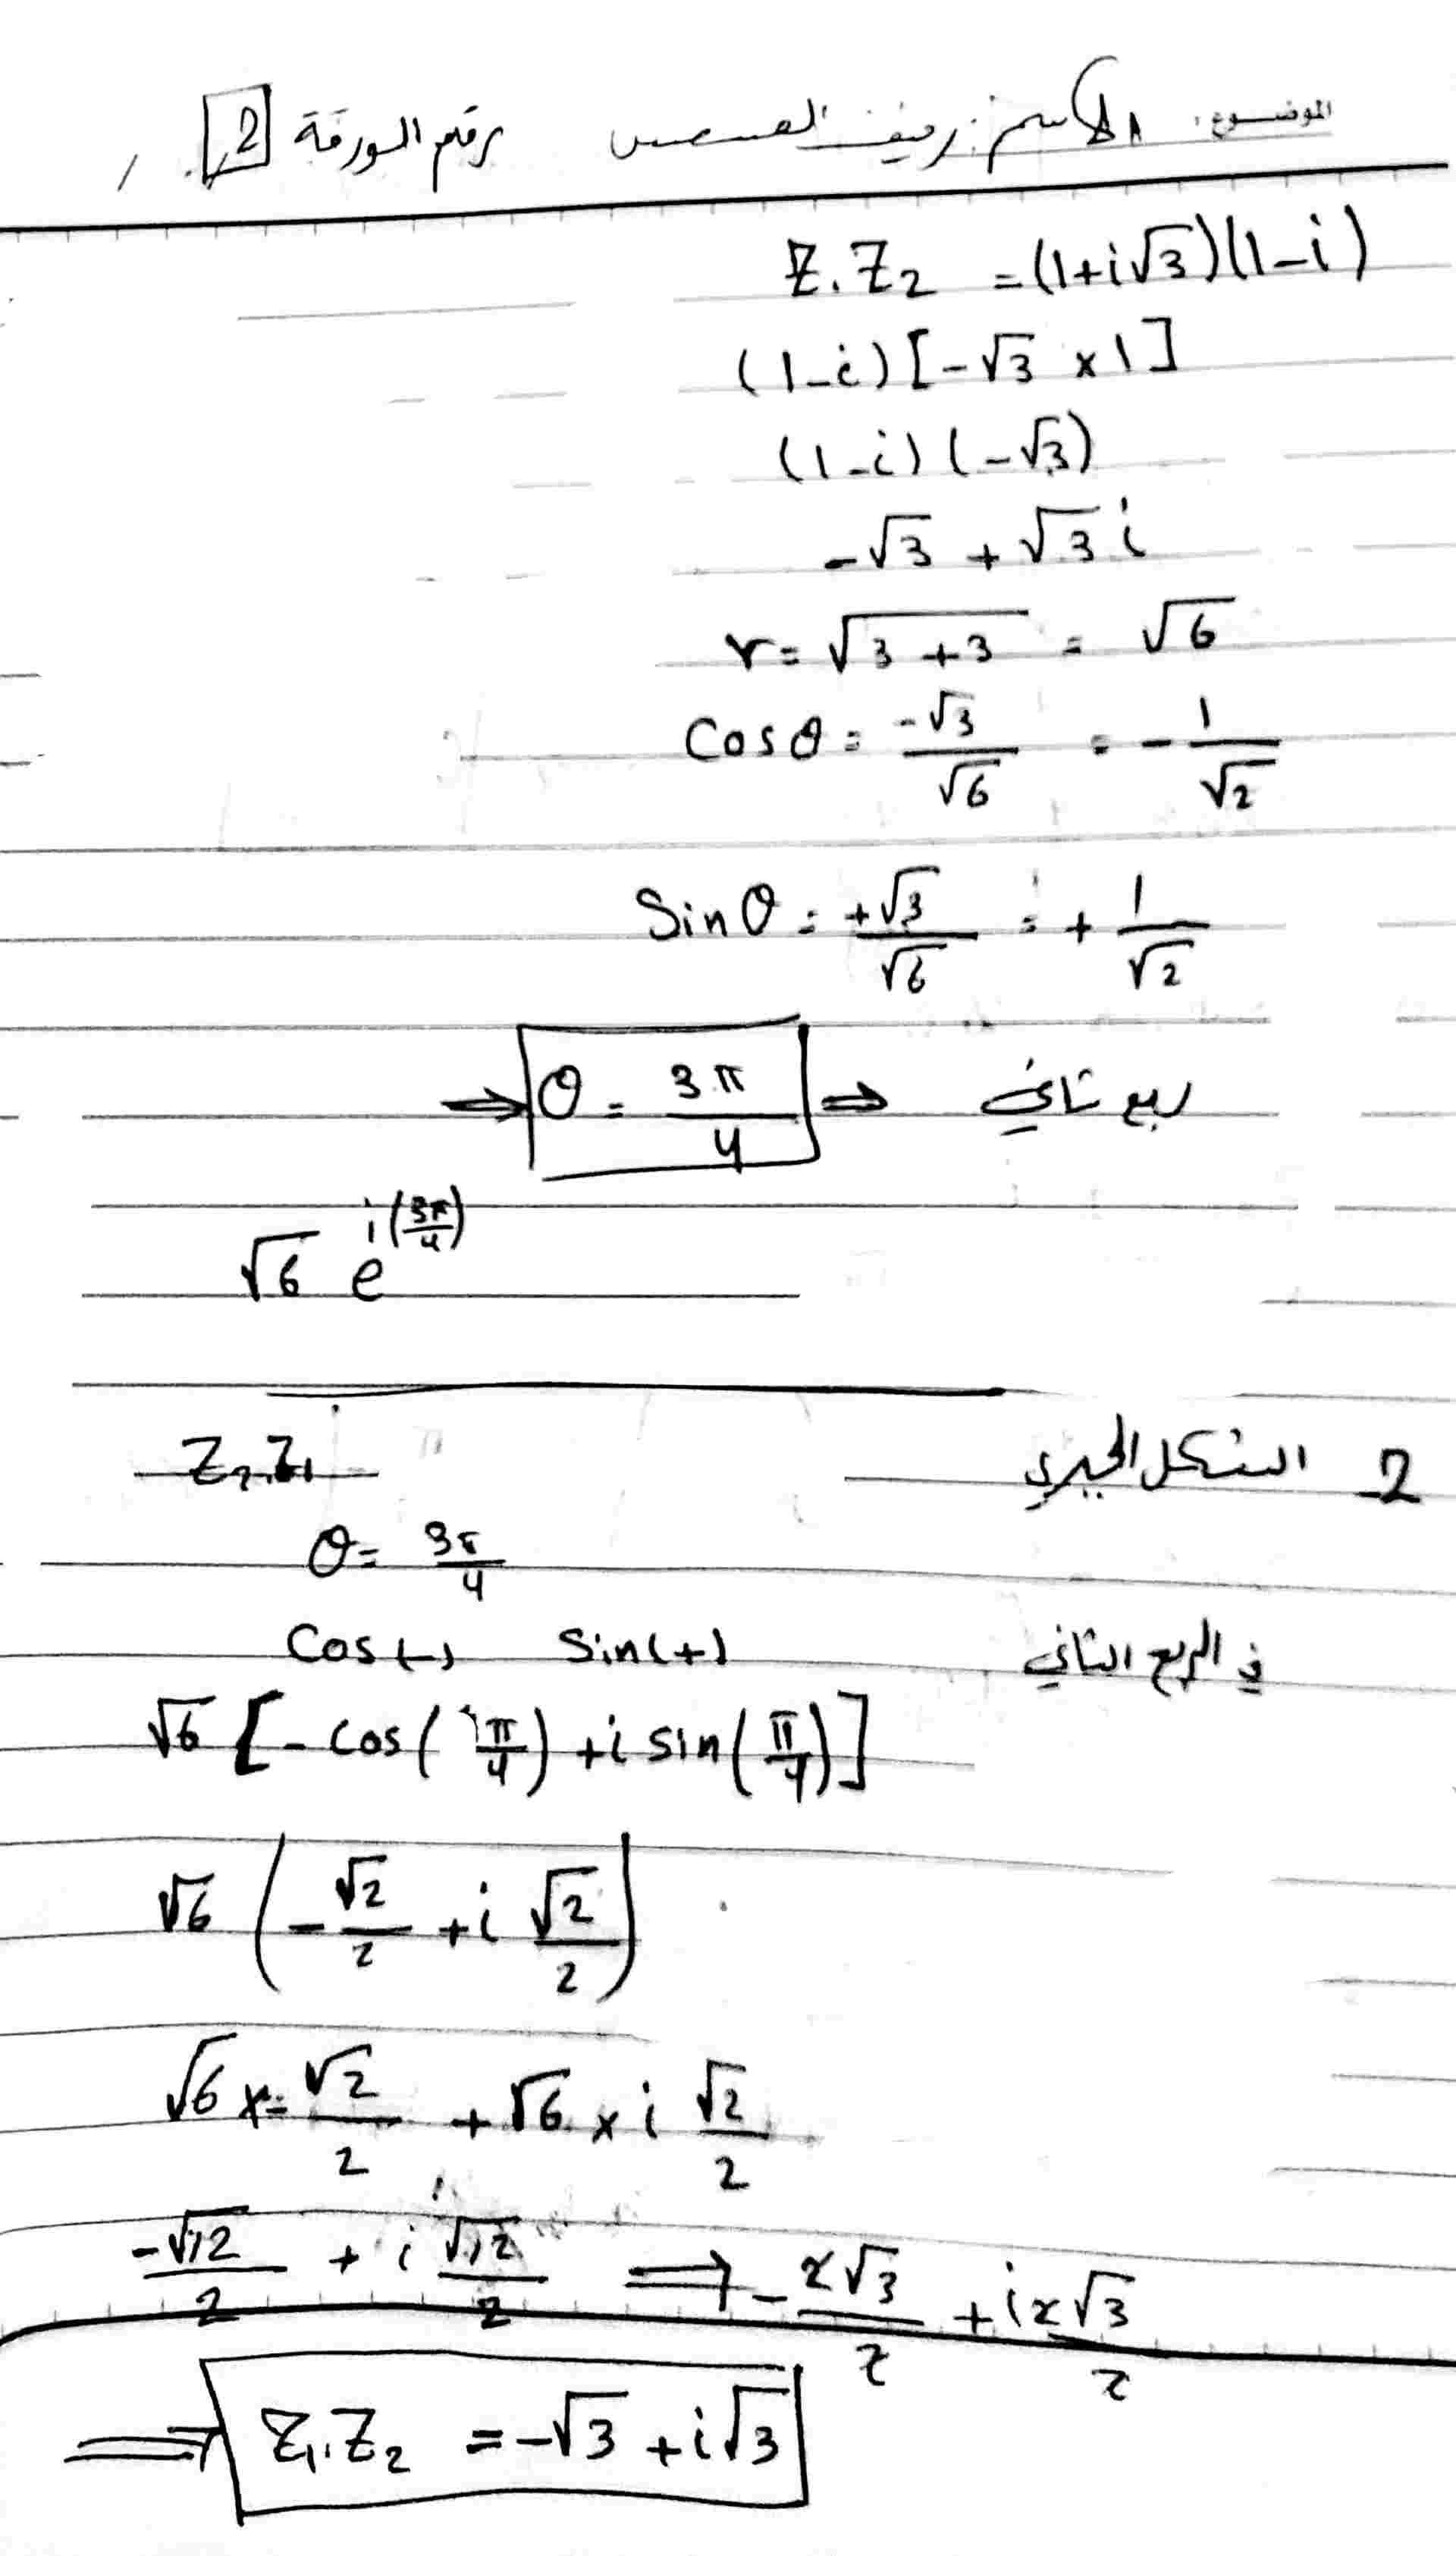 الموضوع: الاسم: رقم الورقة 2
Z₁.Z₂ = (1+i√3)(1-i)
(1-i)[-√3 x 1]
(1-i)(-√3)
-√3 + √3 i
r = √(3+3) = √6
Cosθ = -√3/√6 = -1/√2
Sinθ = +√3/√6 = +1/√2
⇒ θ = 3π/4 ⇒ ربع ثاني
√6 e^i(3π/4)
2- الشكل الجبري Z₂.Z₁
θ = 3π/4
في الربع الثاني Cos(-) Sin(+)
√6 [-cos(π/4) + i sin(π/4)]
√6 (-√2/2 + i √2/2)
√6 x -√2/2 + √6 x i √2/2
-√12/2 + i √12/2 ⇒ -2√3/2 + i 2√3/2
⇒ Z₁.Z₂ = -√3 + i√3